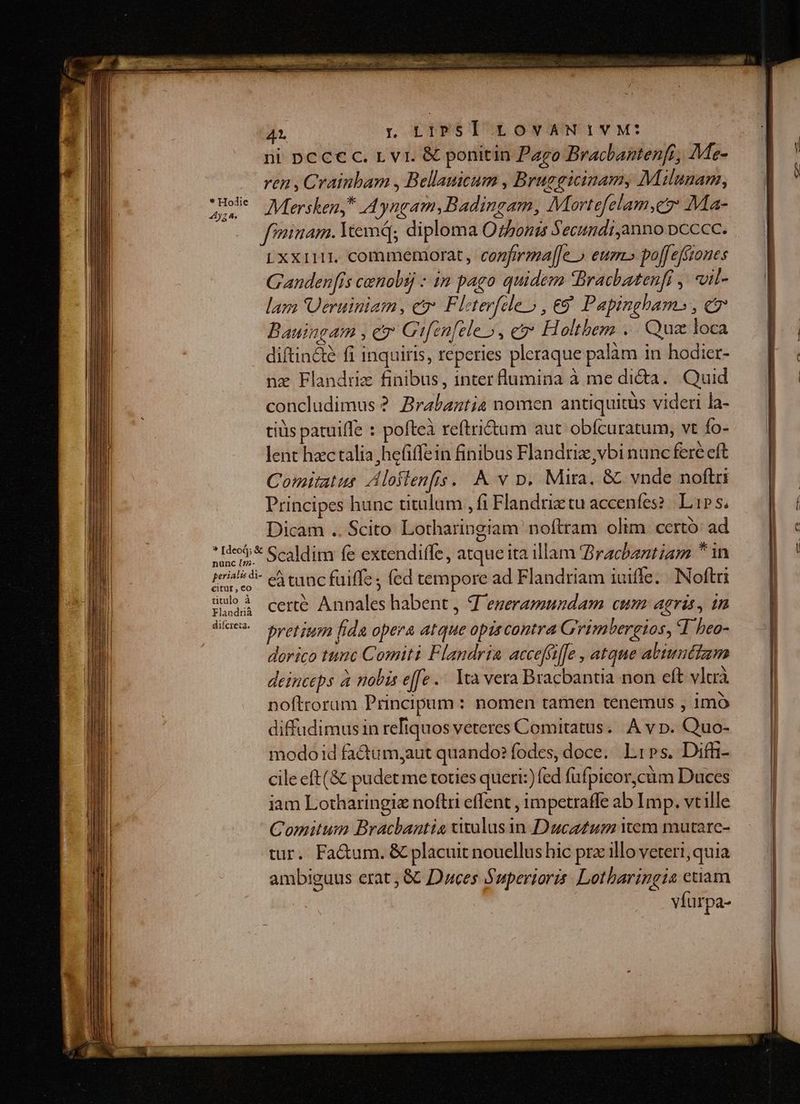 42 I. LIPSI LOVANIVM:
ni DCCCC. LVI. & ponit in Pago Bracbantensi, Me-
ren, Crainham, Bellauicum, Bruggicinam, Milunam,
* Hodie
Ayg4.
Mersken,* Ayngam, Badingam, Morteselam, & Ma-
sminam. Itemq; diploma Othonis Secundi, anno DCCCC.
LXXIIII. commemorat, confirmasse eum possessiones
Gandensis cœnobij: in pago quidem Bracbatensi, vil-
lam Veruiniam, & Fletersele, & Papingham, &
Bauingam, & Gisensele, & Holthem. Quæ loca
distinctè si inquiris, reperies pleraque palàm in hodier-
næ Flandriæ finibus, inter flumina à me dicta. Quid
concludimus? Brabantia nomen antiquitùs videri la-
tiùs patuisse: posteà restrictum aut obscuratum, vt so-
lent hæc talia, hesisse in finibus Flandriæ, vbi nunc ferè est
Comitatus Alostensis. AVD. Mira. & vnde nostri
Principes hunc titulum, si Flandriæ tu accenses? LIPS.
Dicam. Scito Lotharingiam nostram olim certò ad
* Ideoq; &
nunc Im-
perialis di-
citur, eo
titulo à
Flandriâ
discreta.
Scaldim se extendisse, atque ita illam Bracbantiam * in
eâ tunc fuisse; sed tempore ad Flandriam iuisse. Nostri
certè Annales habent, Teneramundam cum agris, in
pretium fida opera atque opis contra Grimbergios, Theo-
dorico tunc Comiti Flandriæ accessisse, atque abiunctam
deinceps à nobis esse. Ita vera Bracbantia non est vltrà
nostrorum Principum: nomen tamen tenemus, imò
diffudimus in reliquos veteres Comitatus. AVD. Quo-
modo id factum, aut quando? sodes, doce. LIPS. Diffi-
cile est (& pudet me toties queri:) sed suspicor, cùm Duces
iam Lotharingiæ nostri essent, impetrasse ab Imp. vt ille
Comitum Bracbantiæ titulus in Ducatum item mutare-
tur. Factum. & placuit nouellus hic præ illo veteri, quia
ambiguus erat, & Duces Superioris Lotharingiæ etiam
vsurpa-